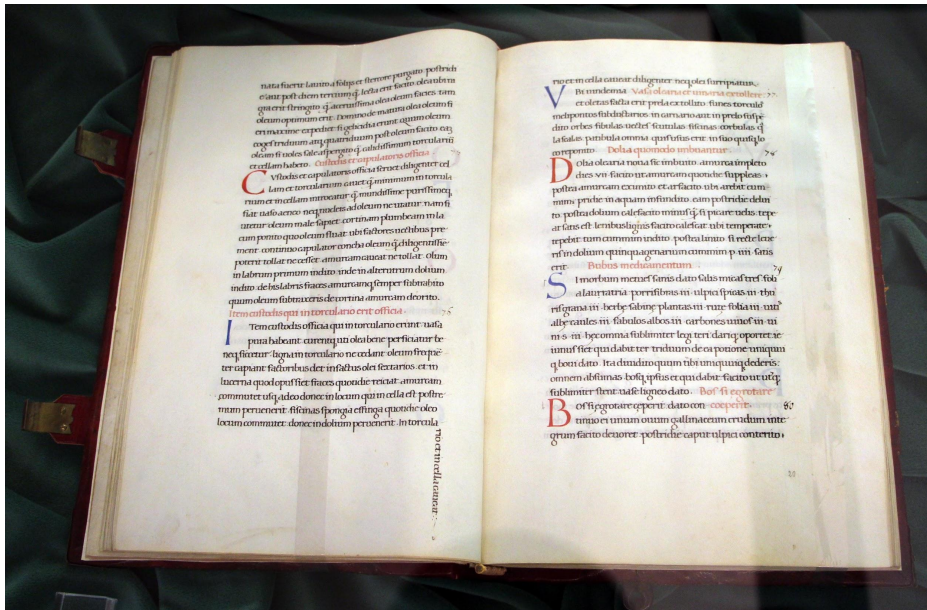 nata fuerit lauito a foliis et stercore purgato. postridie
e aut post diem tertium q̄. lecta erit facito. olea ubi ni
gra erit stringito. q̄. acerrissima olea oleum facies. tam
oleum optimum erit. Domino de matura olea oleum fi
eri maxime expediet. si gelicidia erunt quum oleum
coges triduum atq; quatriduum post oleum facito. eaq;
oleam si uoles sale aspergito. q̄. calidissimum torculariū
et cellam habeto. Custodis et capulatoris officia
77
CVstodis et capulatoris officia seruet diligenter cel
lam et torcularium caueat q̄. minimum in torcula
rium et in cellam introeatur q̄. mundissime purissimeq;
fiat. uaso aeneo neq; nucleis ad oleum ne utatur. nam si
utetur oleum male sapiet. cortinam plumbeam in la
cum ponito quo oleum fluat. ubi factores uectibus pre
ment continuo capulator concha oleum q̄. diligentissie
poterit tollat ne cesset. amurcam caueat ne tollat. Olum
in labrum primum indito. inde in alterutrum dolium
indito. de his labris fraces amurcamq; semper subtrahito
quum oleum subtraxeris de cortina amurcam deorito.
Item custodis qui in torculario erit officia. 76
ITem custodis officia qui in torculario erunt uasa
pura habeant. curent q; uti olea bene perficiatur be
neq; siccetur. ligna in torculario ne cedant. oleum freque
ter capiant. factoribus det in factus olei sextarios. et in
lucerna quod opus siet. fraces quotidie reiciat. amurcam
commutet usq; adeo donec in locum qui in cella est postre
mum peruenerit. fiscinas spongia effinga. quotidie oleo
locum commutet. donec in dolium peruenerit. In torcula
rio et in cella caueat
rio et in cella caueat diligenter neq; olei surripiatur.
VBi uindemia Vasa olearia et uinaria extollere 77
et oletas facta erit prela extollito. funes torculo
medipontos subductarios in carnario aut in prelo suspē
dito. orbes fibulas uectes scutulas fiscinas corbulas q̄
la scalas patibula omnia quis usus erit in suo quicq; lo
co reponito. Dolia quomodo imbuantur 78
DOlia olearia noua sic imbuito. amurca impleto
dies VII facito ut amurcam quotidie suppleas.
postea amurcam eximito et arfacito. ubi arebit cum
mim; pridie in aquam infundito. eam postridie delin
to. postea dolium calefacito minus q̄. si picare uelis. tepe
at satis est. lenibus lignis facito calescat. ubi temperate
tepebit tum cummim indito. postea linito. si recte leue
ris in dolium quinquagenarium cummim p̄. IIII. satis
erit. Bobus medicamentum. 79
SI morbum metues sanis dato salis micas tres folī
a laurea tria. porri fibras III ulpici spicas III. thu
ris grana III. herbe sabine plantas III. rute folia III. uiti
albe caules III. fabulos albos III. carbones uiuos III. ui
ni s. III. hec omnia sublimiter legi teri dariq; oportet. ie
iunus siet qui dabit. per triduum de ea potione unicuiq
q; boui dato. Ita diuidito quum tibi unicuiq; dederis
omnem absumas. bosq; ipsus et qui dabit facito ut utiq;
sublimiter stent. uase ligneo dato. Bos si egrotare
BOs si egrotare ceperit dato con ceperit. 80
tinuo ei unum ouum gallinaceum crudum inte
grum facito deuoret. postridie caput ulpici conterito